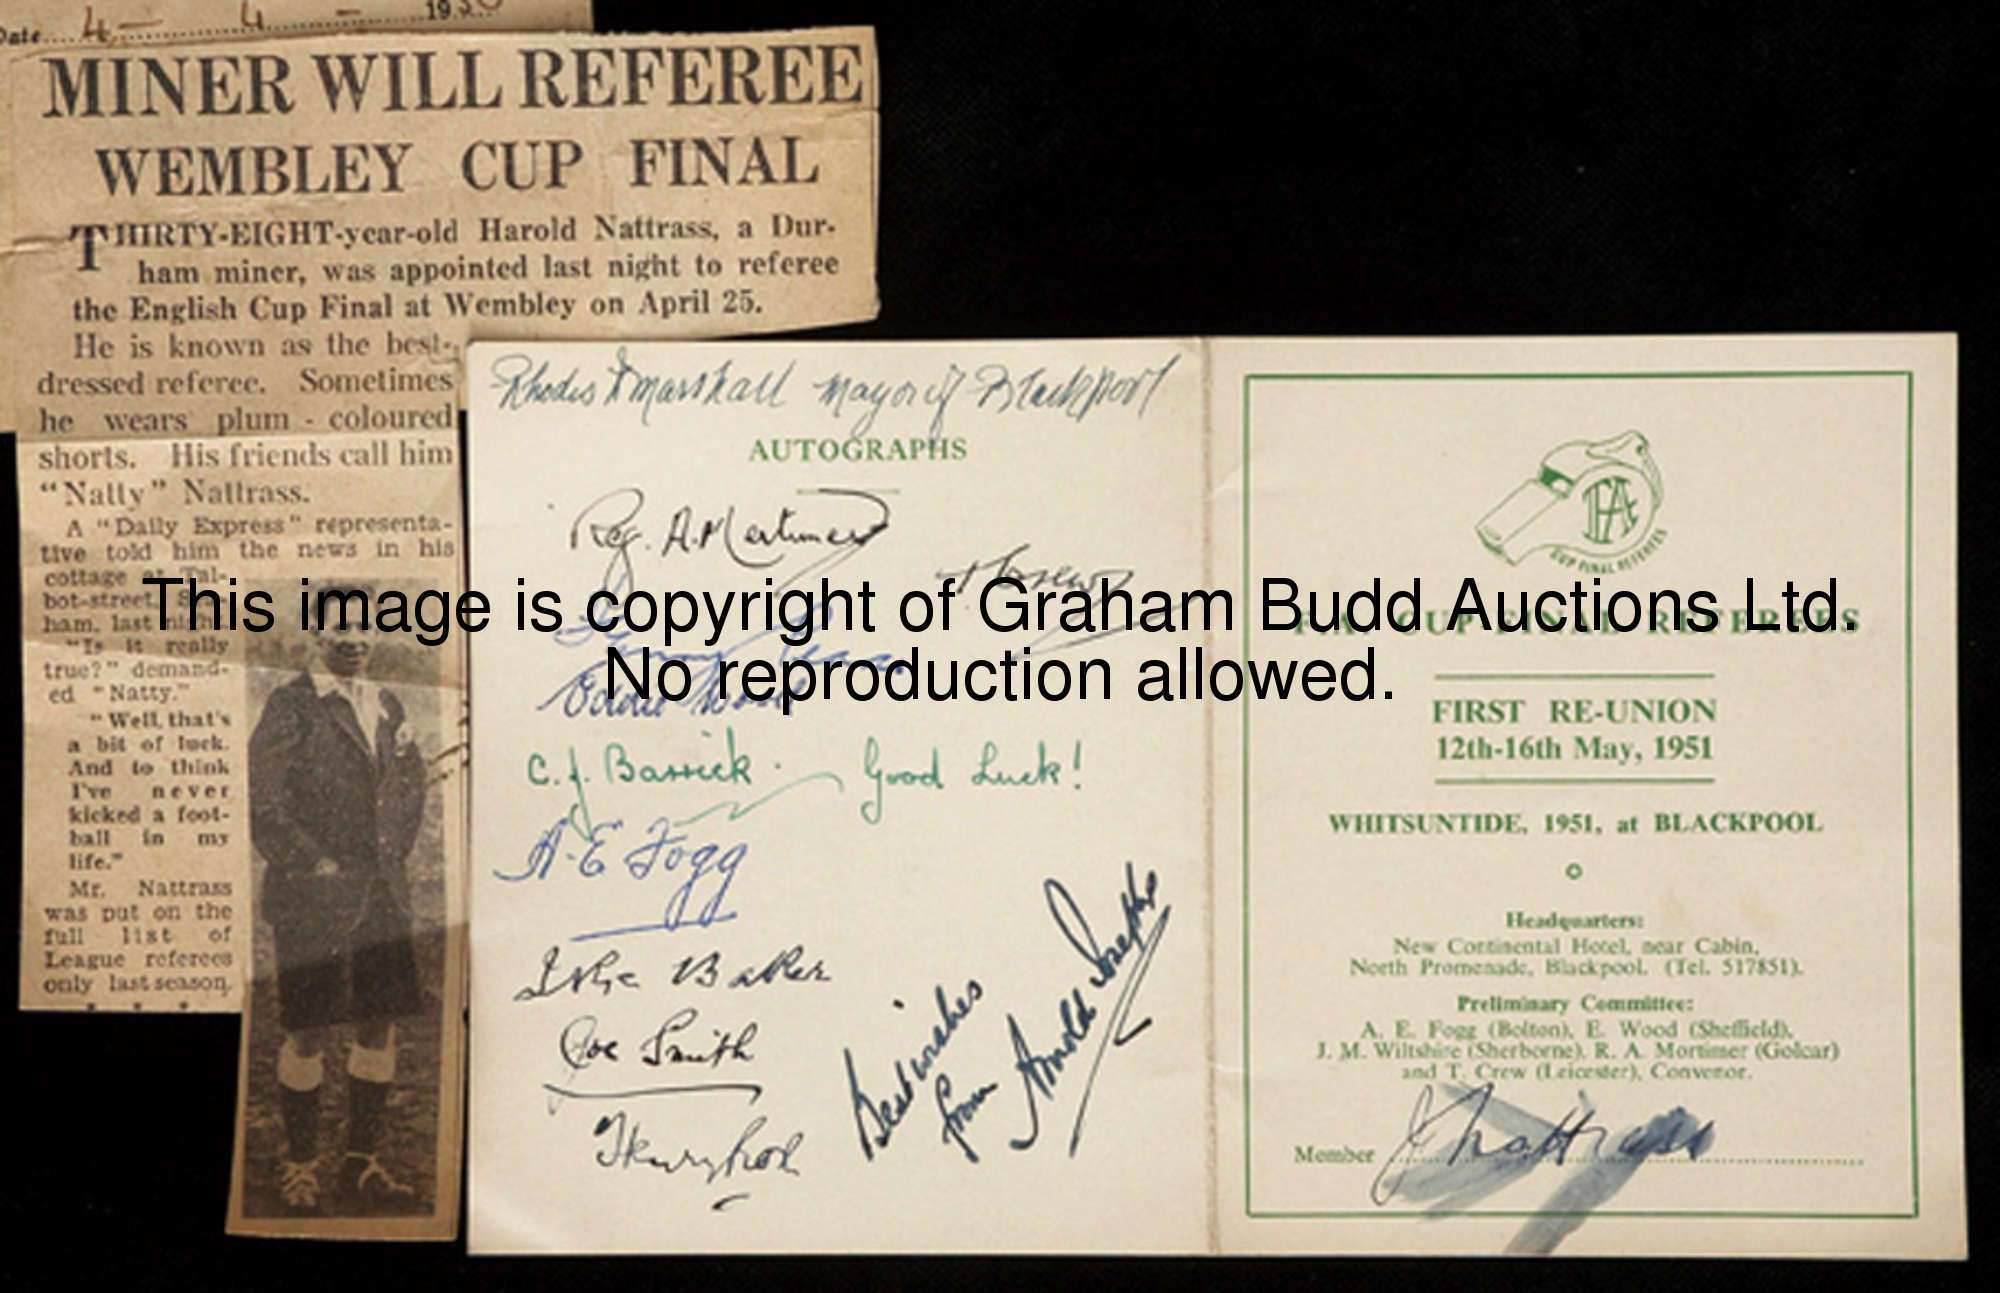 Date 4 - 4 - 1936
MINER WILL REFEREE
WEMBLEY CUP FINAL
THIRTY-EIGHT-year-old Harold Nattrass, a Dur-
ham miner, was appointed last night to referee
the English Cup Final at Wembley on April 25.
He is known as the best-
dressed referee. Sometimes
he wears plum - coloured
shorts. His friends call him
"Natty" Nattrass.
A "Daily Express" representa-
tive told him the news in his
cottage at Tal-
bot-street,
ham, last night.
"Is it really
true?" demand-
ed "Natty."
"Well, that's
a bit of luck.
And to think
I've never
kicked a foot-
ball in my
life."
Mr. Nattrass
was put on the
full list of
League referees
only last season.
Rhodes Marshall Mayor of Blackpool
AUTOGRAPHS
Reg. A. Mortimer
T Crew
Eddie Wood
C. J. Barrick. Good Luck!
A. E. Fogg
Baker
Joe Smith
Best wishes
from Arnold Josephs
FA
CUP FINAL REFEREES
F.A. CUP FINAL REFEREES
FIRST RE-UNION
12th-16th May, 1951
WHITSUNTIDE, 1951, at BLACKPOOL
Headquarters:
New Continental Hotel, near Cabin,
North Promenade, Blackpool. (Tel. 517851).
Preliminary Committee:
A. E. Fogg (Bolton), E. Wood (Sheffield),
J. M. Wiltshire (Sherborne), R. A. Mortimer (Golcar)
and T. Crew (Leicester), Convenor.
Member Nattrass
This image is copyright of Graham Budd Auctions Ltd.
No reproduction allowed.